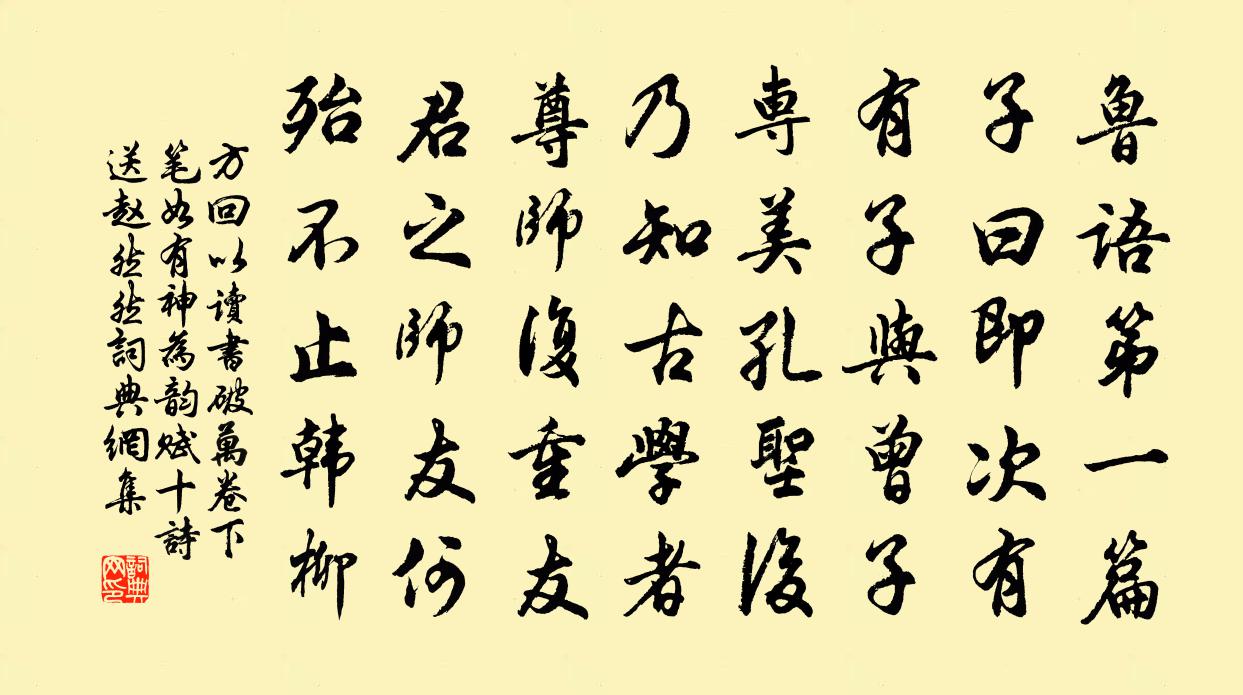 魯語第一篇
子曰即次有
有子與曾子
専美孔聖後
乃知古學者
尊師復重友
君之師友何
殆不止韩柳
方回以讀書破萬卷下
笔如有神為韵赋十詩
送赵然然詞典網集
詞典
网印